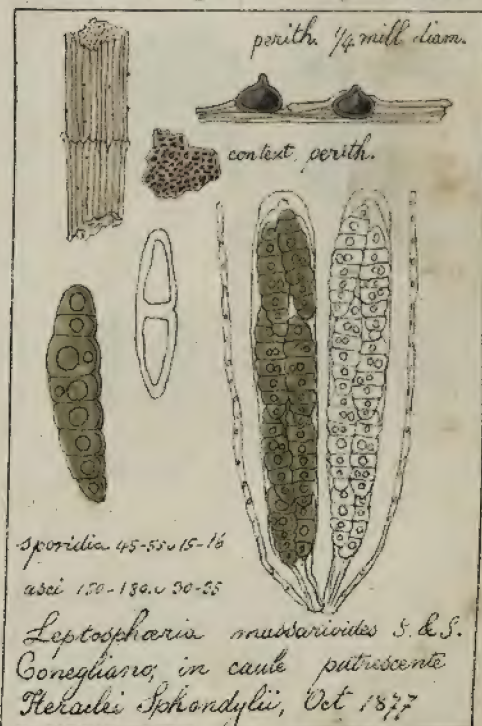 perith. 1/4 mill diam.
context perith.
sporidia 45-55 15-16
asci 150-180 30-35
Leptosphæria mussarioides S. & S.
Conegliano, in caule putrescente
Heraclei Sphondylii, Oct 1877